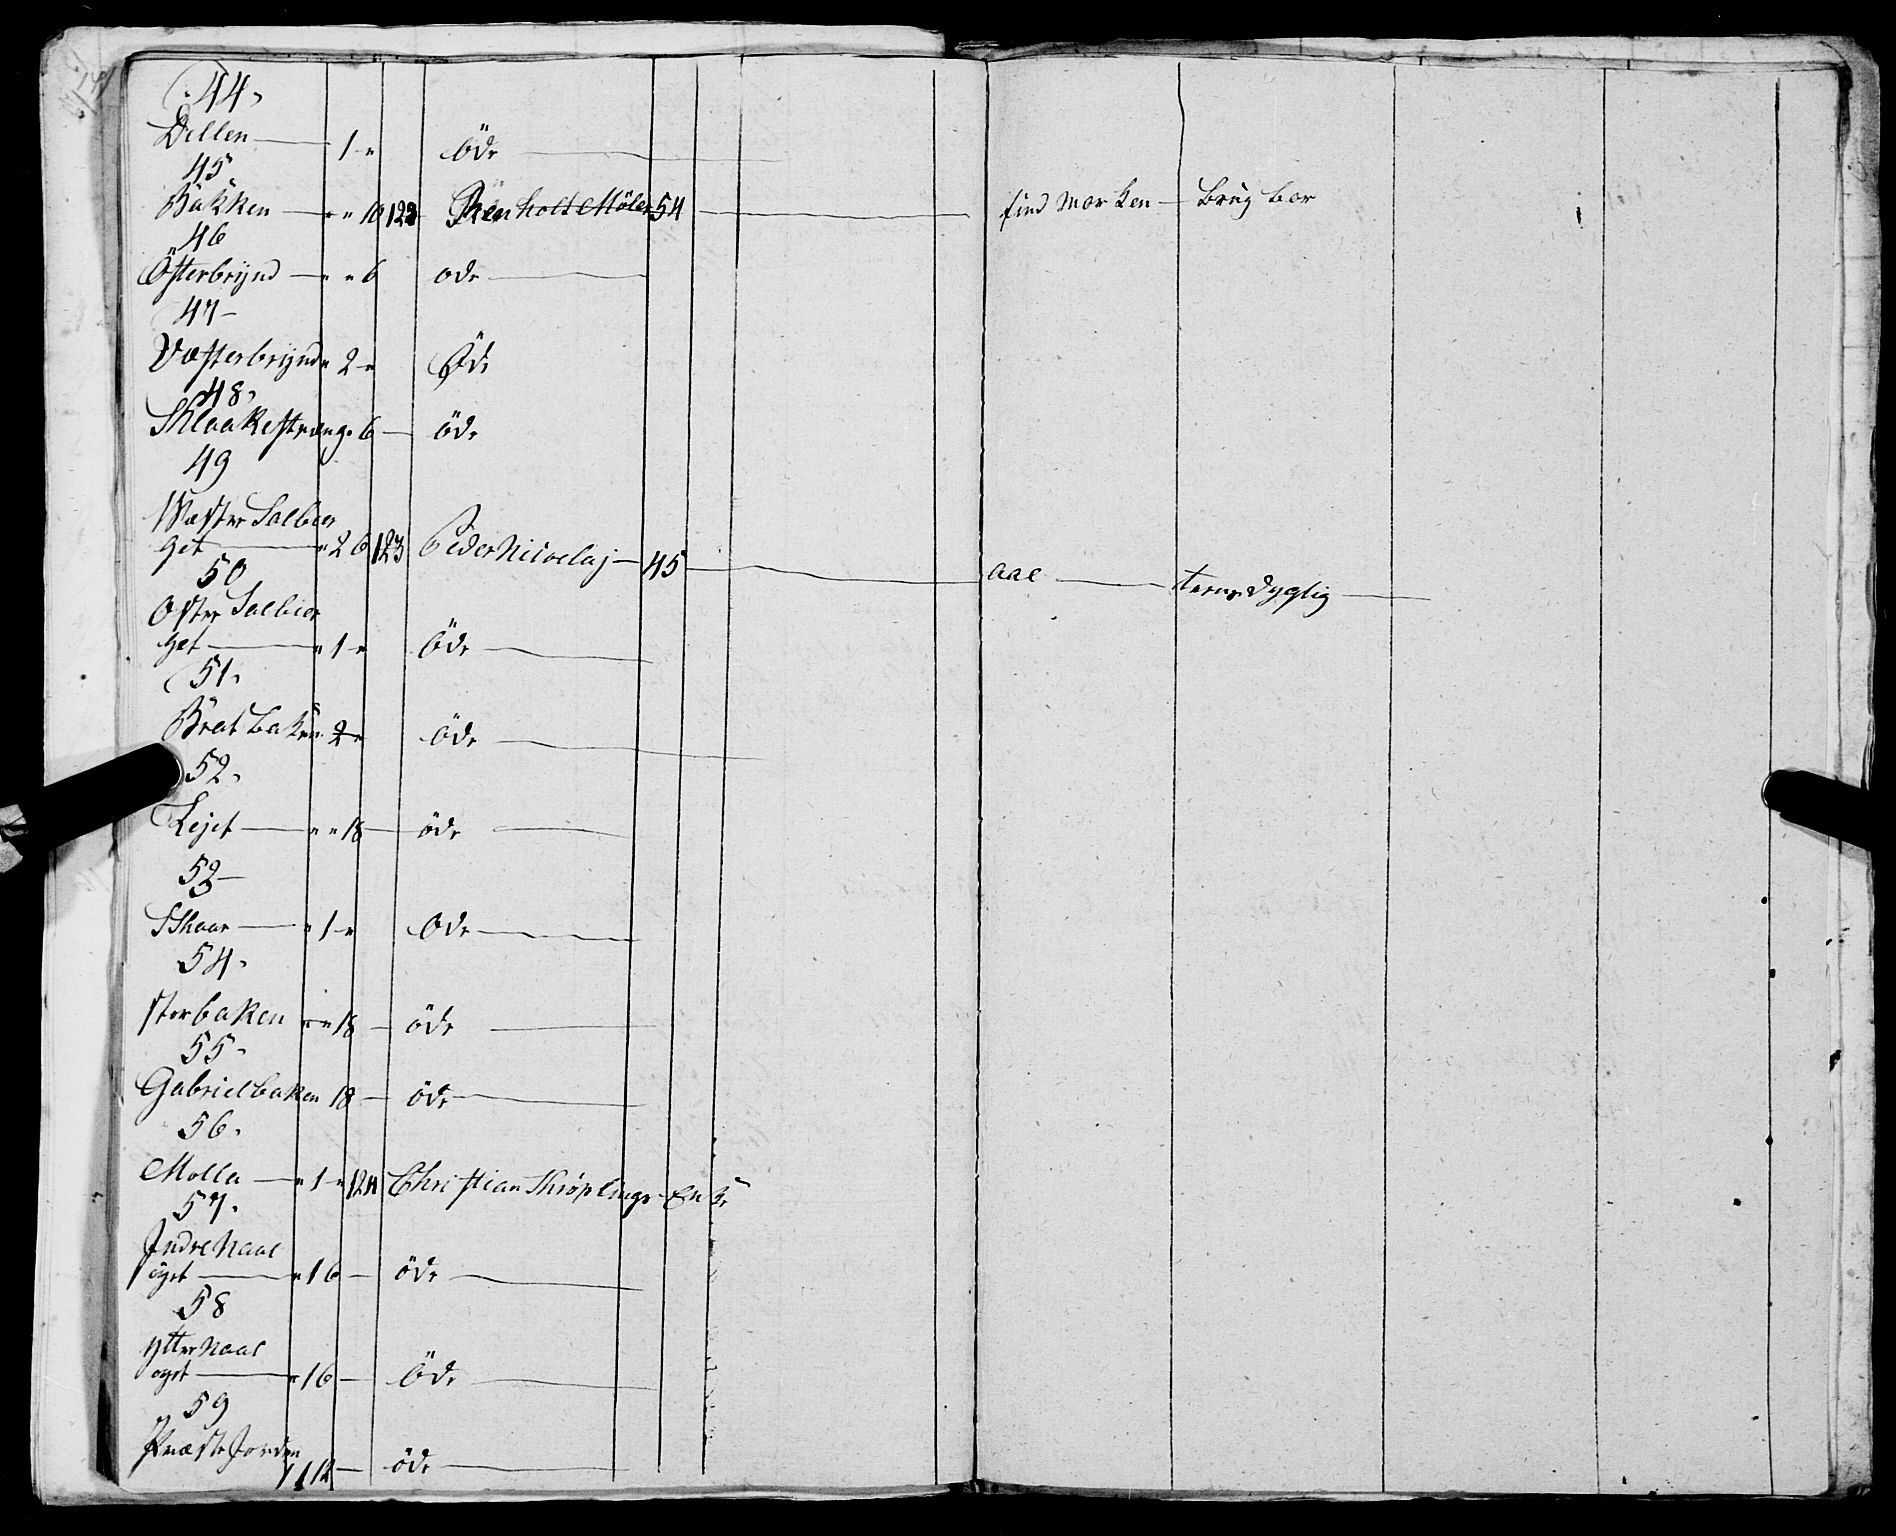 44,
Dellen — 1 "  öde —
45
Bakken — " " 16 123 Renholt Möler 54 — find Marken — Brug bar
46
Österbrynd — " " 6 ode —
47 —
Væsterbrynd " 2 " Øde
48,
Skaakestræng " 6 — öde
49
Wæster Salbier
get — " 2 6 123 Peder Nicolaj — 45 — aae — tieneDygtig —
50
Oster Salbier
get — " 1 " Öde —
51,
Bratbaken 2 " öde —
52,
Lejet — " " 18 — öde —
53 —
Skaar — " 1 " Ode —
54,
storbaken " " 18 — öde —
55,
Gabrielbaken 18 — öde —
56,
Molla — " 1 " 124 Christian Skröplings Enke
57,
Indre Naal
öget — " 16 — öde —
58
ytter Naal
oget — " 16 — Öde —
59
Præste Jorden
1 12 — öde —